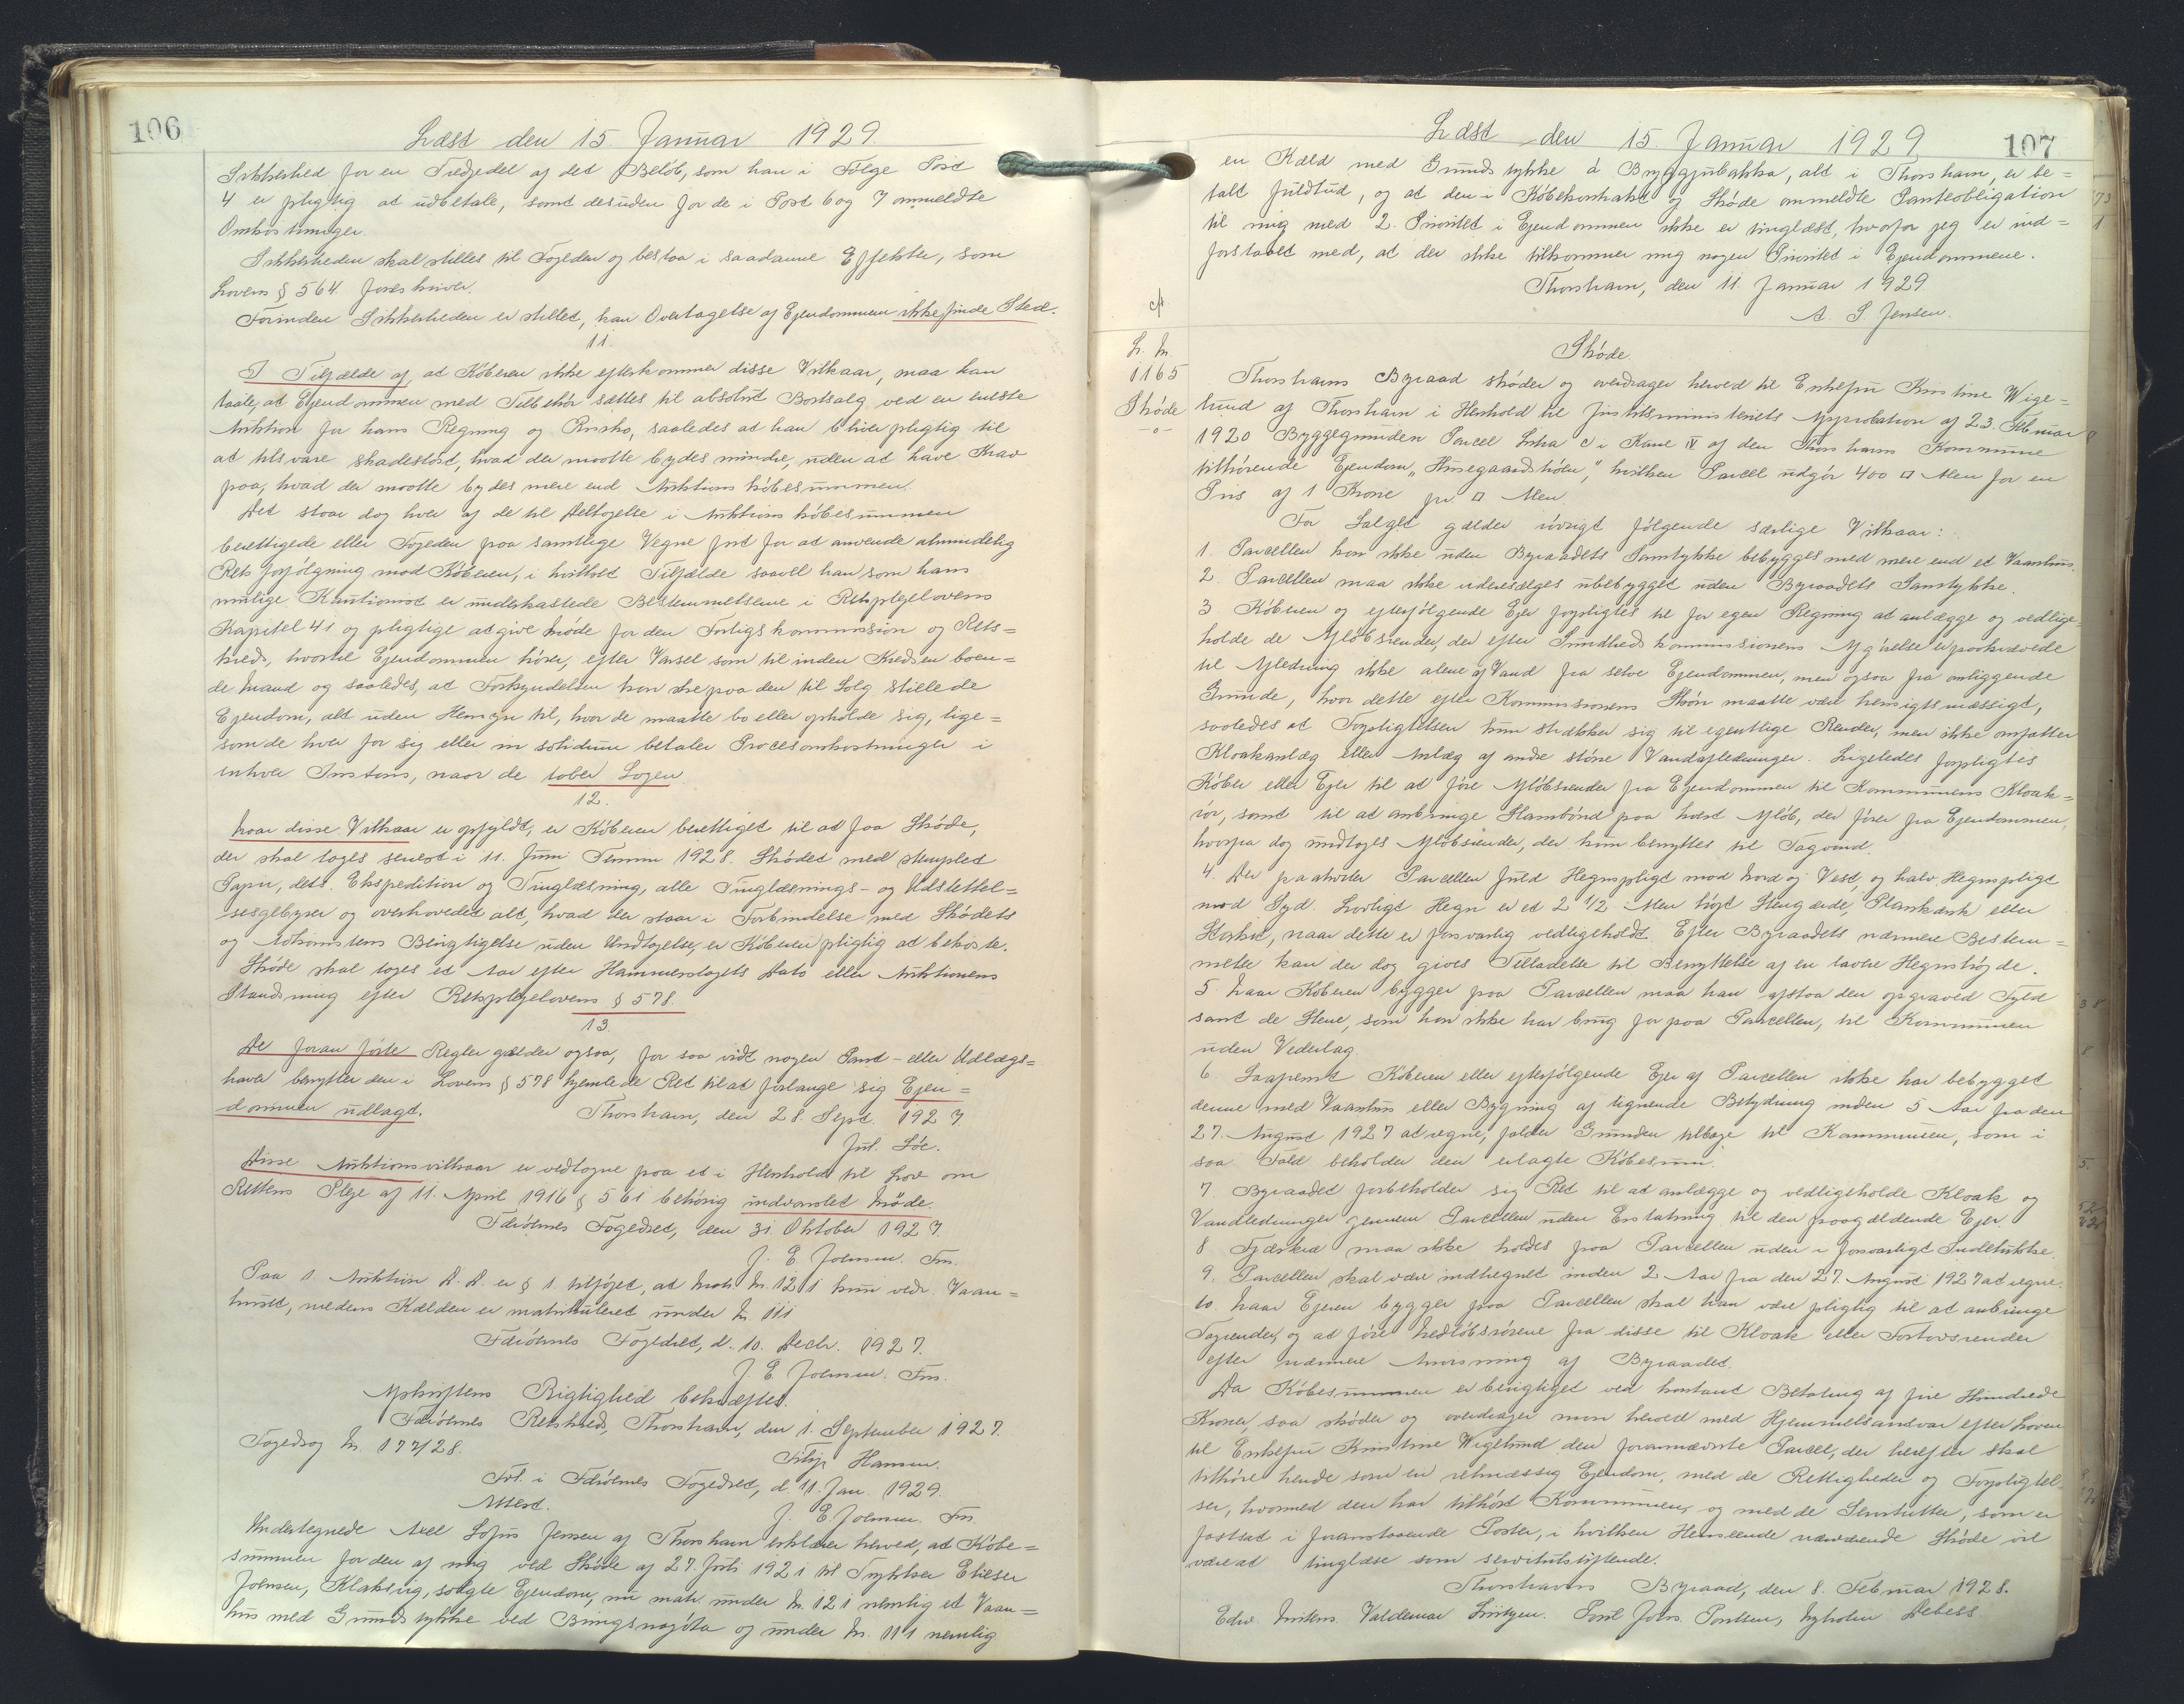 106
Læst den 15. Januar 1929.
Sikkerhed for en Tredjedel af det Beløb, som han i Følge Post
4 er pligtig at udbetale, samt desuden for de i Post 6 og 7 ommeldte
Omkostninger.
Sikkerheden skal stilles til Fogeden og bestaa i saadanne Effekter, som
Lovens § 564 foreskriver.
Forinden Sikkerheden er stillet, kan Overtagelse af Ejendommen ikke finde Sted.
11.
I Tilfælde af, at Køberen ikke efterkommer disse Vilkaar, maa han
taale, at Ejendommen med Tilbehør sættes til absolut Bortsalg ved en eneste
Auktion for hans Regning og Risiko, saaledes at han bliver pligtig til
at tilsvare skadesløst, hvad der maatte bydes mindre, uden at have Krav
paa, hvad der maatte bydes mere end Auktionskøbesummen.
Det staar dog hver af de til Deltagelse i Auktionskøbesummen
berettigede eller Fogeden paa samtlige Vegne frit for at anvende almindelig
Retsforfølgning mod Køberen, i hvilket Tilfælde saavel han som hans
mulige Kautionist er underkastede Bestemmelserne i Retsplejelovens
Kapitel 41 og pligtige at give Møde for den Forligskommission og Rets=
kreds, hvortil Ejendommen hører, efter Varsel som til inden Kredsen boen=
de Mand og saaledes, at Forkyndelsen kan ske paa den til Salg stillede
Ejendom, alt uden Hensyn til, hvor de maatte bo eller opholde sig, lige=
som de hver for sig eller in solidum betaler Procesomkostninger i
enhver Instans, naar de taber Sagen.
12.
Naar disse Vilkaar er opfyldt, er Køberen berettiget til at faa Skøde,
der skal tages senest i 11. Juni Termin 1928. Skødet med stemplet
Papir, dets Ekspedition og Tinglæsning, alle Tinglæsnings- og Udslettel=
sesgebyrer og overhovedet alt, hvad der staar i Forbindelse med Skødets
og Adkomstens Berigtigelse uden Undtagelse, er Køberen pligtig at bekoste.
Skøde skal tages et Aar efter Hammerslagets Dato eller Auktionens
Standsning efter Retsplejelovens § 578.
13.
De foran førte Regler gælder ogsaa, for saa vidt nogen Pant- eller Udlægs=
haver benytter den i Lovens § 578 hjemlede Ret til at forlange sig Ejen=
dommen udlagt. Thorshavn, den 28. Sept. 1927.
Disse Auktionsvilkaar er vedtagne paa et i Henhold til Lov om
Rettens Pleje af 11. April 1916 § 561 behørig indvarslet Møde.
Færøernes Fogedret, den 31. Oktober 1927.
J. E. Joensen. Fm.
Paa 1. Auktion D.D. er § 1 tilføjet, at Matr. Nr. 121 kun vedr. Vaan=
huset, medens Kælden er matrikuleret under Nr. 111
Færøernes Fogedret, d. 10. Decbr. 1927.
J. E. Joensen. Fm.
Afskriftens Rigtighed bekræftes.
Færøernes Retskreds, Thorshavn, den 1. September 1927.
Filip Hansen.
Fogedsag Nr. 177/28.
Frl. i Færøernes Fogedret, d. 11. Jan. 1929.
Attest. J. E. Joensen. Fm.
Undertegnede Axel Sofus Jensen af Thorshavn erklærer herved, at Købe=
summen for den af mig ved Skøde af 27. Juli 1921 til Trykker Elieser
Joensen, Klaksvig, solgte Ejendom, nu matr. under Nr. 121 nemlig et Vaan=
hus med Grundstykke ved Bringsnagøta og under Nr. 111 nemlig
107
Læst den 15. Januar 1929
en Kæld med Grundstykke á Bryggjubakka, alt i Thorshavn, er be=
talt fuldtud, og at den i Købekontrakt og Skøde ommeldte Panteobligation
til mig med 2. Prioritet i Ejendommen ikke er tinglæst, hvorfor jeg er ind=
forstaaet med, at der ikke tilkommer mig nogen Prioritet i Ejendommene.
Thorshavn, den 11. Januar 1929
A. S Jensen.
Skøde.
L. Nr.
1165
Skøde
-o-
Thorshavns Byraad skøder og overdrager herved til Enkefru Kristine Wige=
lund af Thorshavn i Henhold til Justitsministeriets Approbation af 23. Februar
1920 Byggegrunden Parcel Litra c i Kane IV af den Thorshavns Kommune
tilhørende Ejendom "Husegaardshøen", hvilken Parcel udgør 400 □ Alen for en
Pris af 1 Krone pr □ Alen.
For Salget gælder iøvrigt følgende særlige Vilkaar:
1. Parcellen kan ikke uden Byraadets Samtykke bebygges med mere end et Vaanhus.
2. Parcellen maa ikke videresælges ubebygget uden Byraadets Samtykke.
3. Køberen og efterfølgende Ejer forpligtes til for egen Regning at anlægge og vedlige=
holde de Afløbsrender, der efter Sundhedskommissionens Afgørelse er paakrævede
til Afledning ikke alene af Vand fra selve Ejendommen, men ogsaa fra omliggende
Grunde, hvor dette efter Kommissionens Skøn maatte være hensigtsmæssigt,
saaledes at Forpligtelsen kun strækker sig til egentlige Render, men ikke omfatter
Kloakanlæg eller Anlæg af andre større Vandafledninger. Ligeledes forpligtes
Køber eller Ejer til at føre Afløbsrender fra Ejendommen til Kommunens Kloak=
rør, samt til at anbringe Slambrønd paa hvert Afløb, der fører fra Ejendommen,
hvorfra dog undtages Afløbsrender, der kun benyttes til Tagvand.
4. Der paahviler Parcellen fuld Hegnspligt mod Nord og Vest, og halv Hegnspligt
mod Syd. Lovligt Hegn er et 2 1/2 Alen højt Stengærde, Plankeværk eller
Stakit, naar dette er forsvarlig vedligeholdt. Efter Byraadets nærmere Bestem=
melse kan der dog gives Tilladelse til Benyttelse af en lavere Hegnshøjde.
5. Naar Køberen bygger paa Parcellen maa han afstaa den opgravede Fyld
samt de Stene, som han ikke har brug for paa Parcellen, til Kommunen
uden Vederlag.
6. Saafremt Køberen eller efterfølgende Ejer af Parcellen ikke har bebygget
denne med Vaanhus eller Bygning af lignende Betydning inden 5 Aar fra den
27. August 1927 at regne, falder Grunden tilbage til Kommunen, som i
saa Fald beholder den erlagte Købesum.
7. Byraadet forbeholder sig Ret til at anlægge og vedligeholde Kloak og
Vandledninger gennem Parcellen uden Erstatning til den paagældende Ejer.
8 Fjerkræ maa ikke holdes paa Parcellen uden i forsvarligt Indelukke.
9. Parcellen skal være indhegnet inden 2 Aar fra den 27. August 1927 at regne.
10. Naar Ejeren bygger paa Parcellen skal han være pligtig til at anbringe
Tagrender, og at føre Nedløbsrørene fra disse til Kloak eller Fortovsrender
efter nærmere Anvisning af Byraadet.
Da Købesummen er berigtiget ved kontant Betaling af fire Hundrede
Kroner, saa skøder og overdrager man herved med Hjemmelsansvar efter Loven
til Enkefru Kristine Wigelund den forannævnte Parcel, der herefter skal
tilhøre hende som en retmæssig Ejendom, med de Rettigheder og Forpligtel=
ser, hvormed den har tilhørt Kommunen, og med de Servitutter, som er
fastsat i foranstaaende Poster, i hvilken Henseende nærværende Skøde vil
være at tinglæse som servitutstiftende.
Thorshavns Byraad, den 8. Februar 1928.
Valdemar Lützen. Poul Joens. Poulsen, Nyholm Debess.